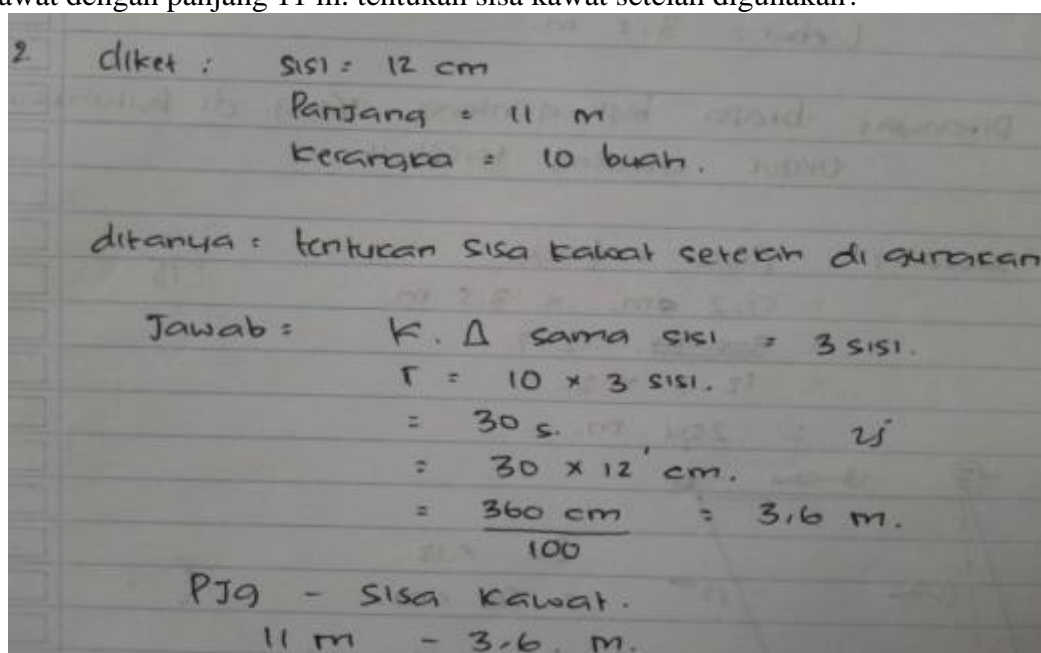 kawat dengan panjang 11 m. tentukan sisa kawat setelah digunakan?
2 diket : sisi = 12 cm
Panjang = 11 m
Kerangka = 10 buah.
ditanya : tentukan sisa kawat setelah di gunakan
Jawab : K. Δ sama sisi = 3 sisi.
= 10 × 3 sisi.
= 30 s.
= 30 × 12 cm.
= 360 cm / 100 = 3,6 m.
PJg - sisa kawat.
11 m - 3,6 m.